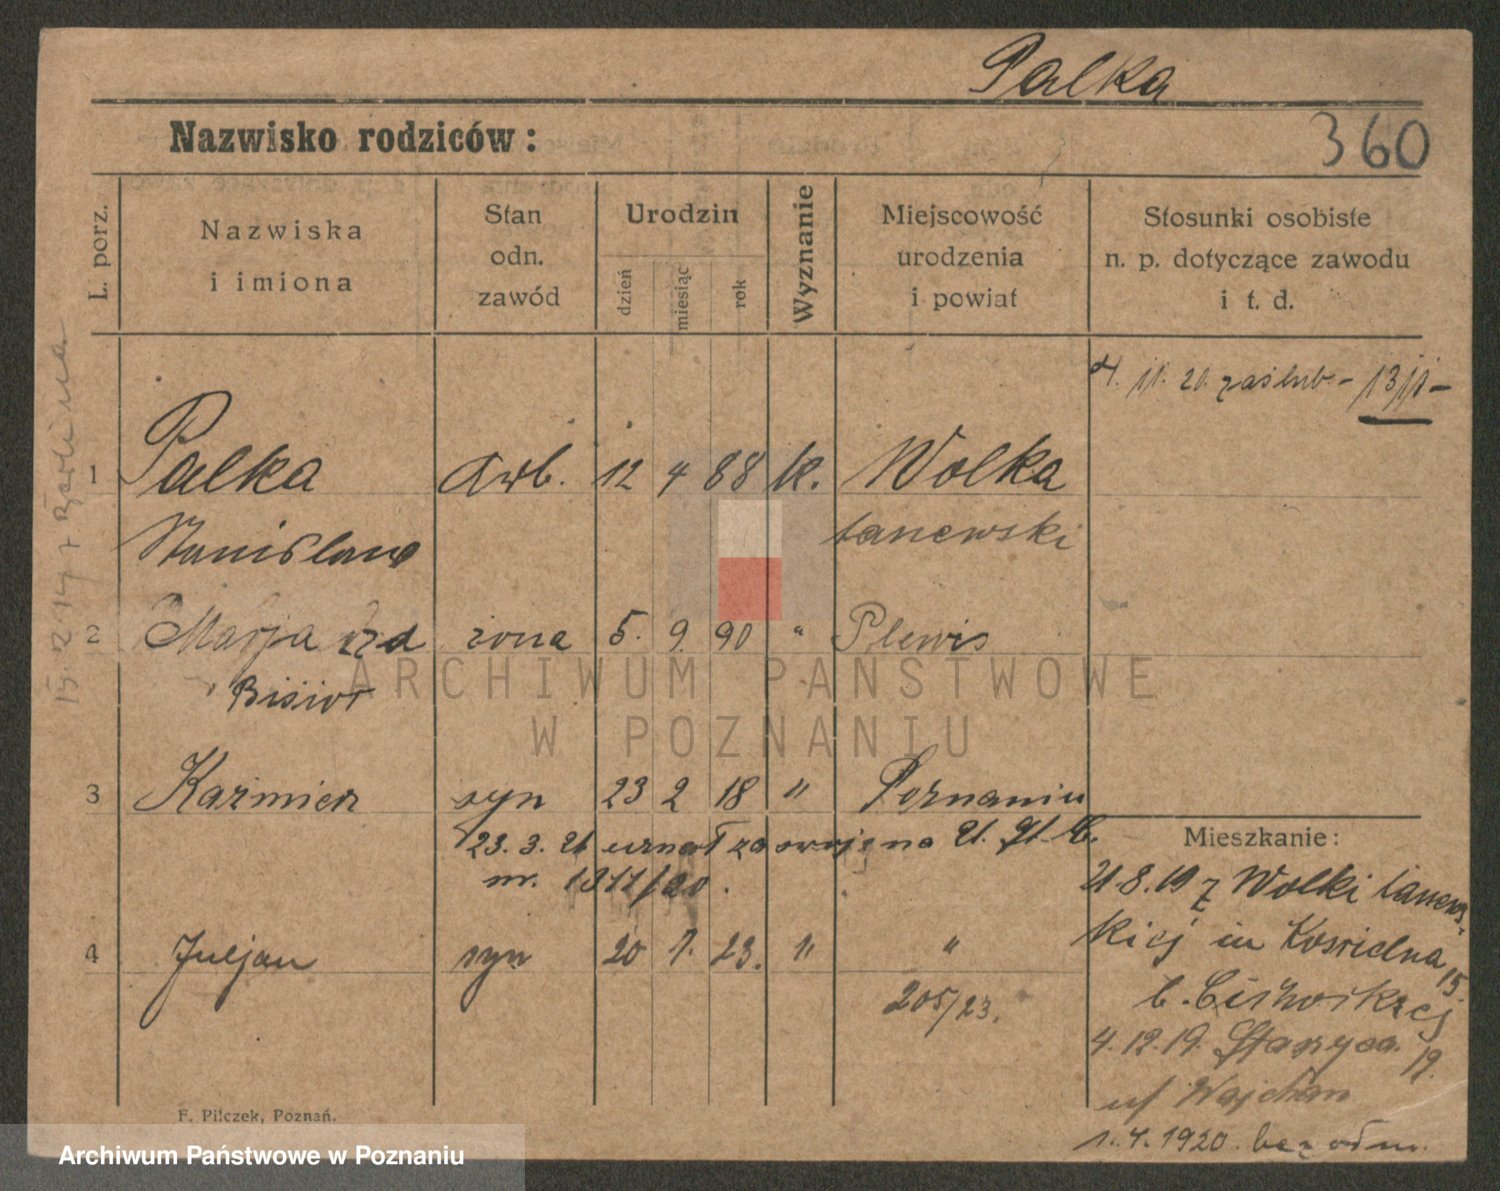 Palka
Nazwisko rodziców:
360
L. porz.
Nazwiska
i imiona
Stan
odn.
zawód
Urodzin
dzień
miesiąc
rok
Wyznanie
Miejscowość
urodzenia
i powiat
Stosunki osobiste
n. p. dotyczące zawodu
i t. d.
11. 20. zaślub- 1311-
1 Palka Arb. 12 4 88 k. Wolka
Stanislaw łanewski
2 Marja żona 5. 9. 90 " Plewis
Bisior
3 Kazmierz syn 23 2 18 " Poznaniu
23. 3. 21 uznał za swojena U. St. C.
nr. 1311/20.
4 Juljan syn 20 1. 23. " "
205/23.
Mieszkanie:
21.8.19 z Wolki łanews-
kiej in Koscielna 15.
b.
4.12.19. 19.
uf
1.4.1920. bez odm.
15. 2. 14
F. Pilczek, Poznań.
ARCHIWUM PAŃSTWOWE
W POZNANIU
Archiwum Państwowe w Poznaniu